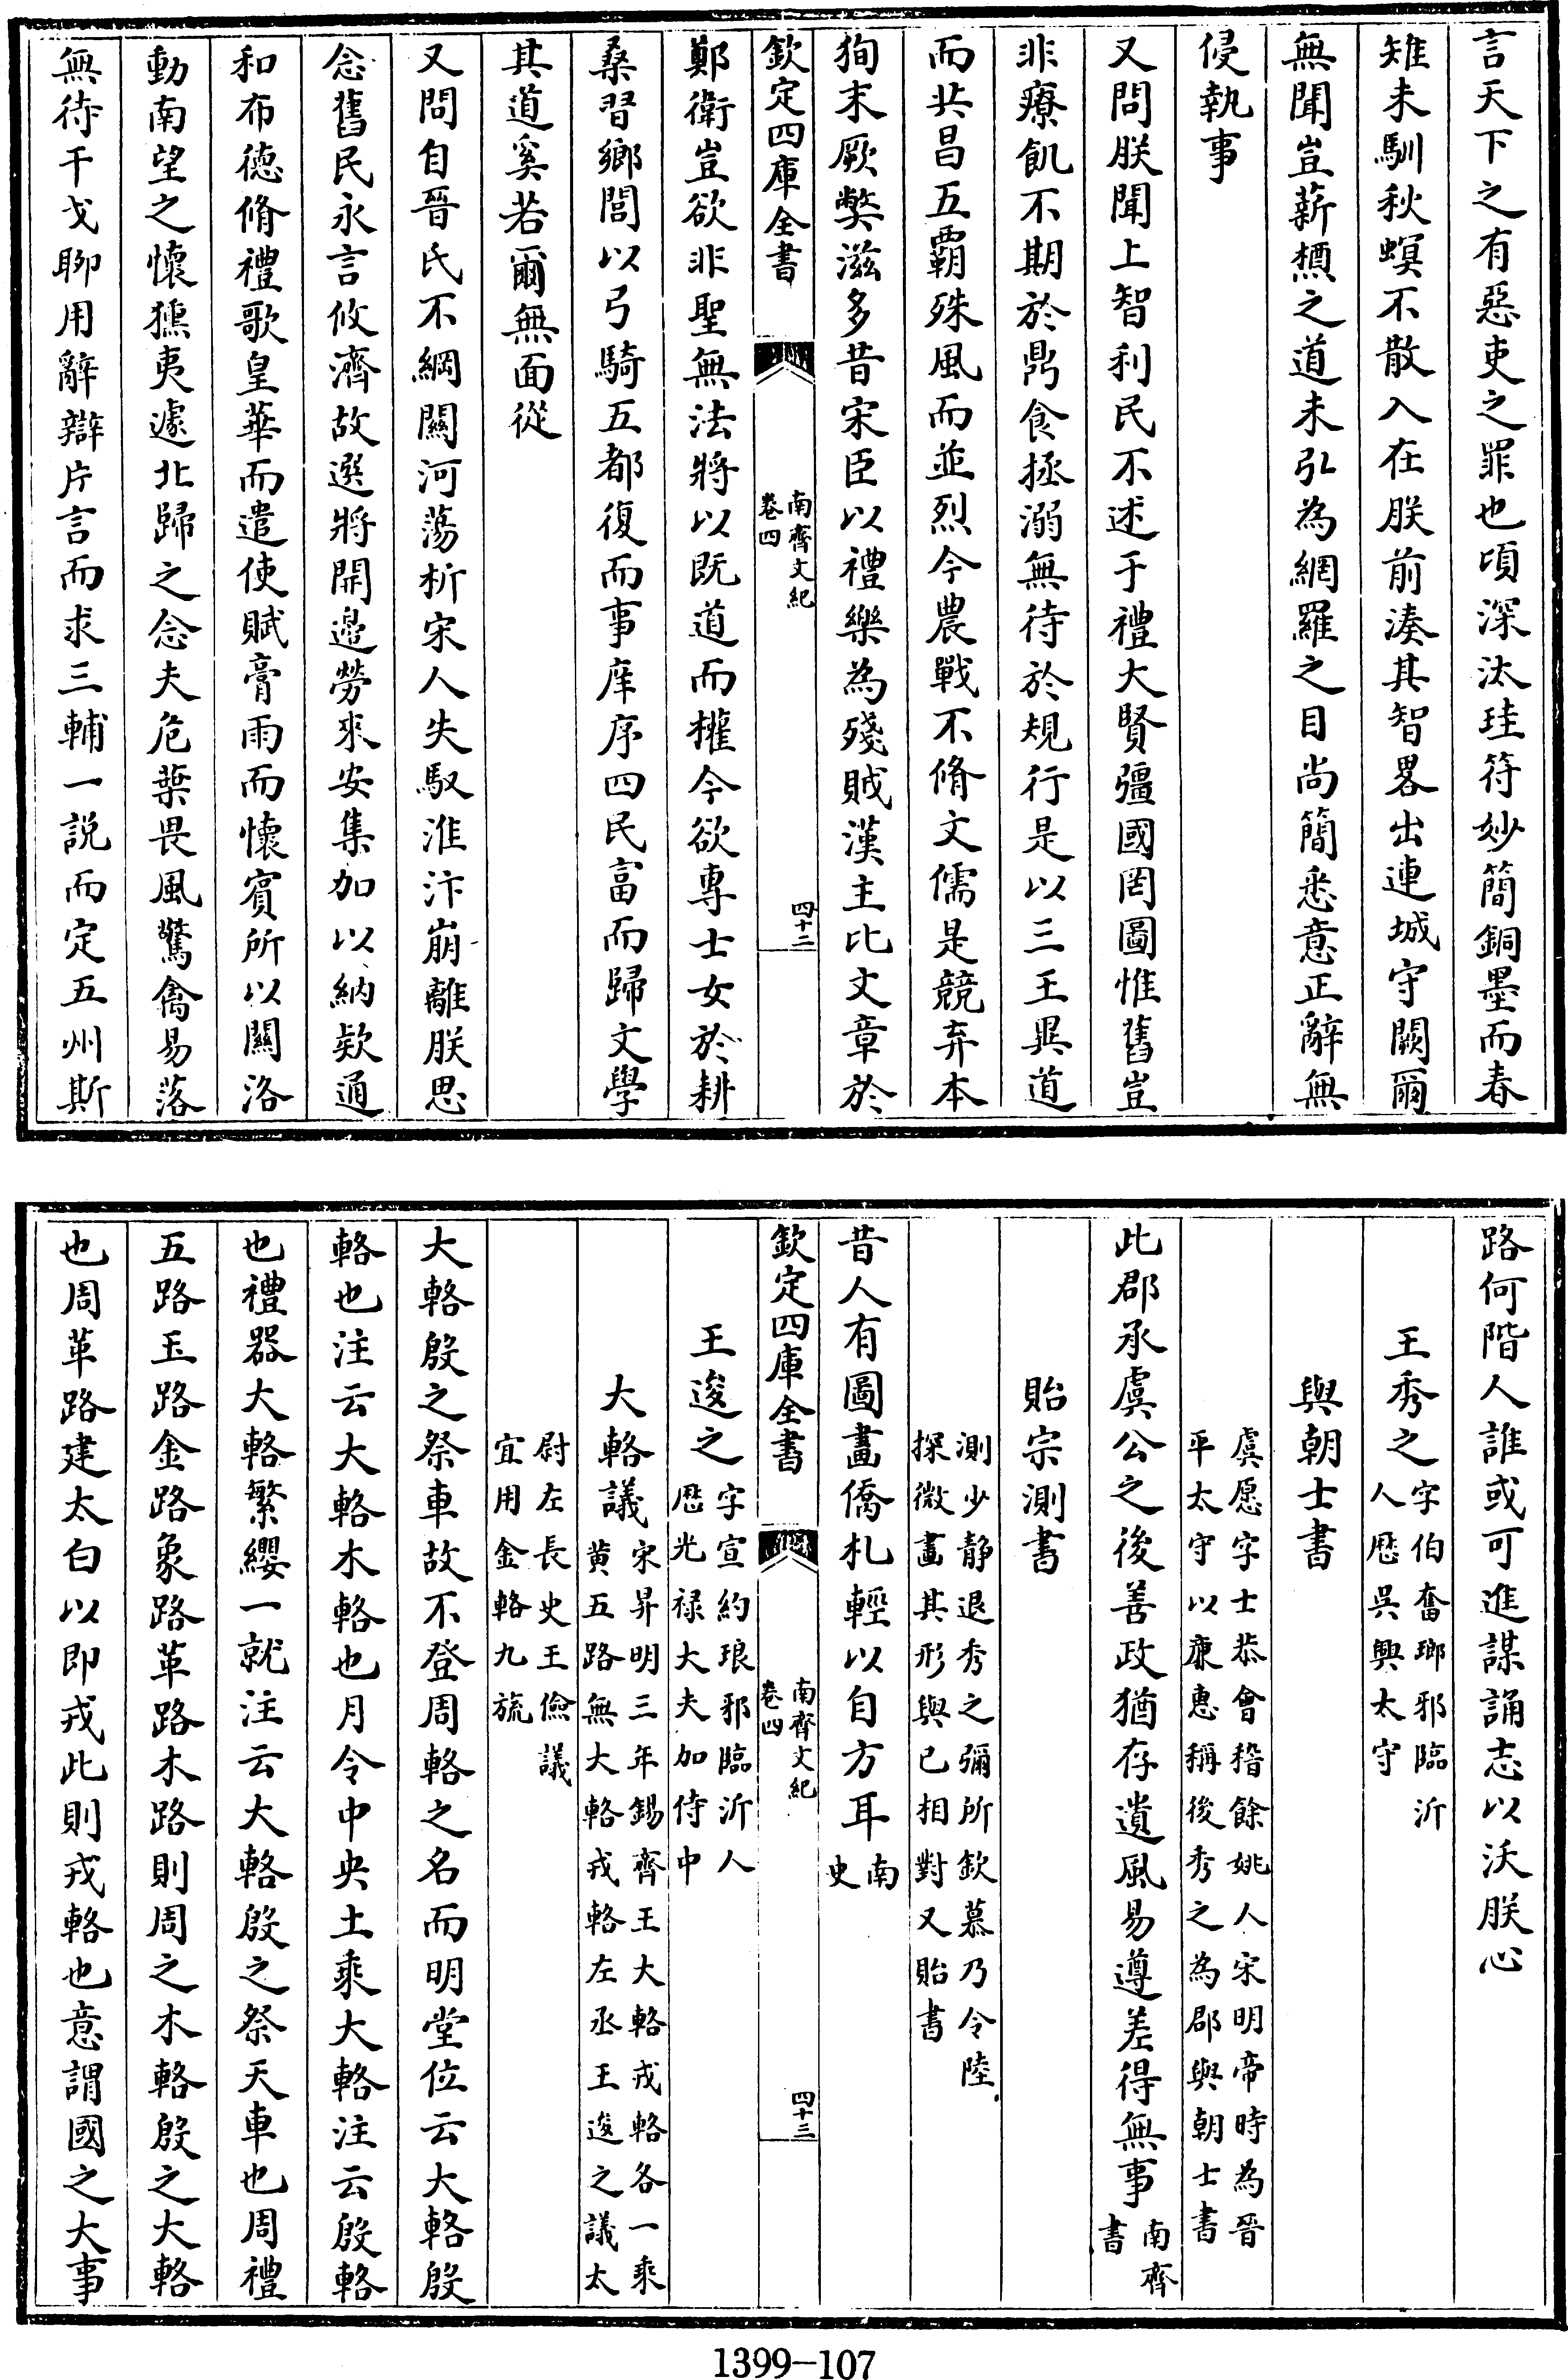 言天下之有惡吏之罪也頃深汰珪符妙簡銅墨而春
雉未馴秋螟不散入在朕前湊其智畧出連城守闕爾
無聞豈薪槱之道未弘為網羅之目尚簡悉意正辭無
侵執事
又問朕聞上智利民不述于禮大賢彊國罔圖惟舊豈
非療飢不期於鼎食拯溺無待於規行是以三王異道
而共昌五覇殊風而並烈今農戰不脩文儒是競弃本
狥末厥獘滋多昔宋臣以禮樂為殘賊漢主比文章於
欽定四庫全書
南齊文紀
卷四
四十二
鄭衛豈欲非聖無法將以既道而權今欲專士女於耕
桑習鄉閭以弓騎五都復而事庠序四民富而歸文學
其道奚若爾無面從
又問自晉氏不綱關河蕩析宋人失馭淮汴崩離朕思
念舊民永言攸濟故選將開邊勞來安集加以納欵通
和布德脩禮歌皇華而遣使賦膏雨而懷賓所以關洛
動南望之懷獯夷遽北歸之念夫危葉畏風驚禽易落
無待干戈聊用辭辯片言而求三輔一説而定五州斯
路何階人誰或可進謀誦志以沃朕心
王秀之字伯奮瑯邪臨沂
人厯吳興太守
與朝士書
虞愿字士恭會稽餘姚人宋明帝時為晉
平太守以亷惠稱後秀之為郡與朝士書
此郡承虞公之後善政猶存遺風易遵差得無事南齊
書
貽宗測書
測少静退秀之彌所欽慕乃令陸
探微畫其形與已相對又貽書
昔人有圖畫僑札輕以自方耳南
史
欽定四庫全書
南齊文紀
卷四
四十三
王逡之字宣約琅邪臨沂人
厯光禄大夫加侍中
大輅議宋昇明三年錫齊王大輅戎輅各一乘
黄五路無大輅戎輅左丞王逡之議太
尉左長史王儉議
宜用金輅九旒
大輅殷之祭車故不登周輅之名而明堂位云大輅殷
輅也注云大輅木輅也月令中央土乘大輅注云殷輅
也禮器大輅繁纓一就注云大輅殷之祭天車也周禮
五路玉路金路象路革路木路則周之木輅殷之大輅
也周革路建太白以即戎此則戎輅也意謂國之大事
1399-107